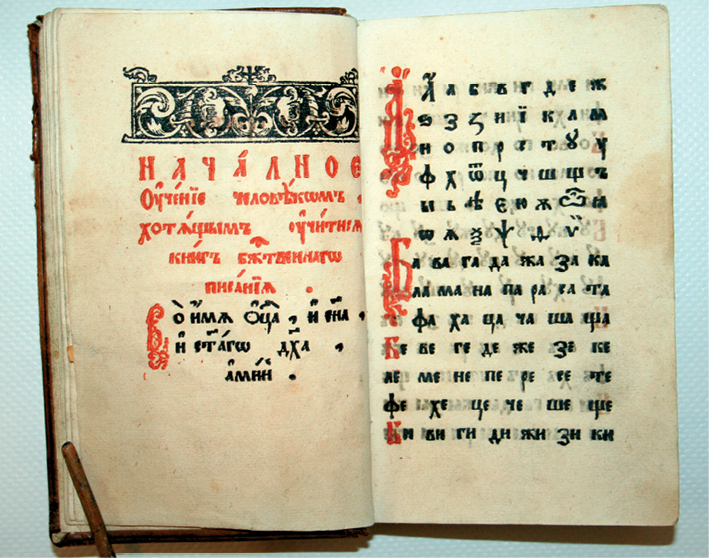 НАЧА́ЛНОЕ
Оу҆че́нїе человѣ́кѡмъ,
хотѧ́щымъ оу҆чи́тисѧ
кни́гъ бж҃твеннагѡ
писа́нїѧ.
Во и҆́мѧ ѻ҆ц҃а̀, и҆ сн҃а,
и҆ ст҃а́гѡ дх҃а,
а҆ми́нь.
А҆ а б в г д е ж
ѕ з ꙁ и ї к л м
н о п р с т ꙋ у
ф х ѿ ц ч ш щ ъ
ы ь ѣ є ю ѫ ѽ ꙗ
ѡ ѧ ѯ ѱ ѳ ѵ
Ба ва га да жа за ка
ла ма на па ра са та
фа ха ца ча ша ща
Бе ве ге де же зе ке
ле ме не пе ре се те
фе хе це че ше ще
Би ви ги ди жи зи ки